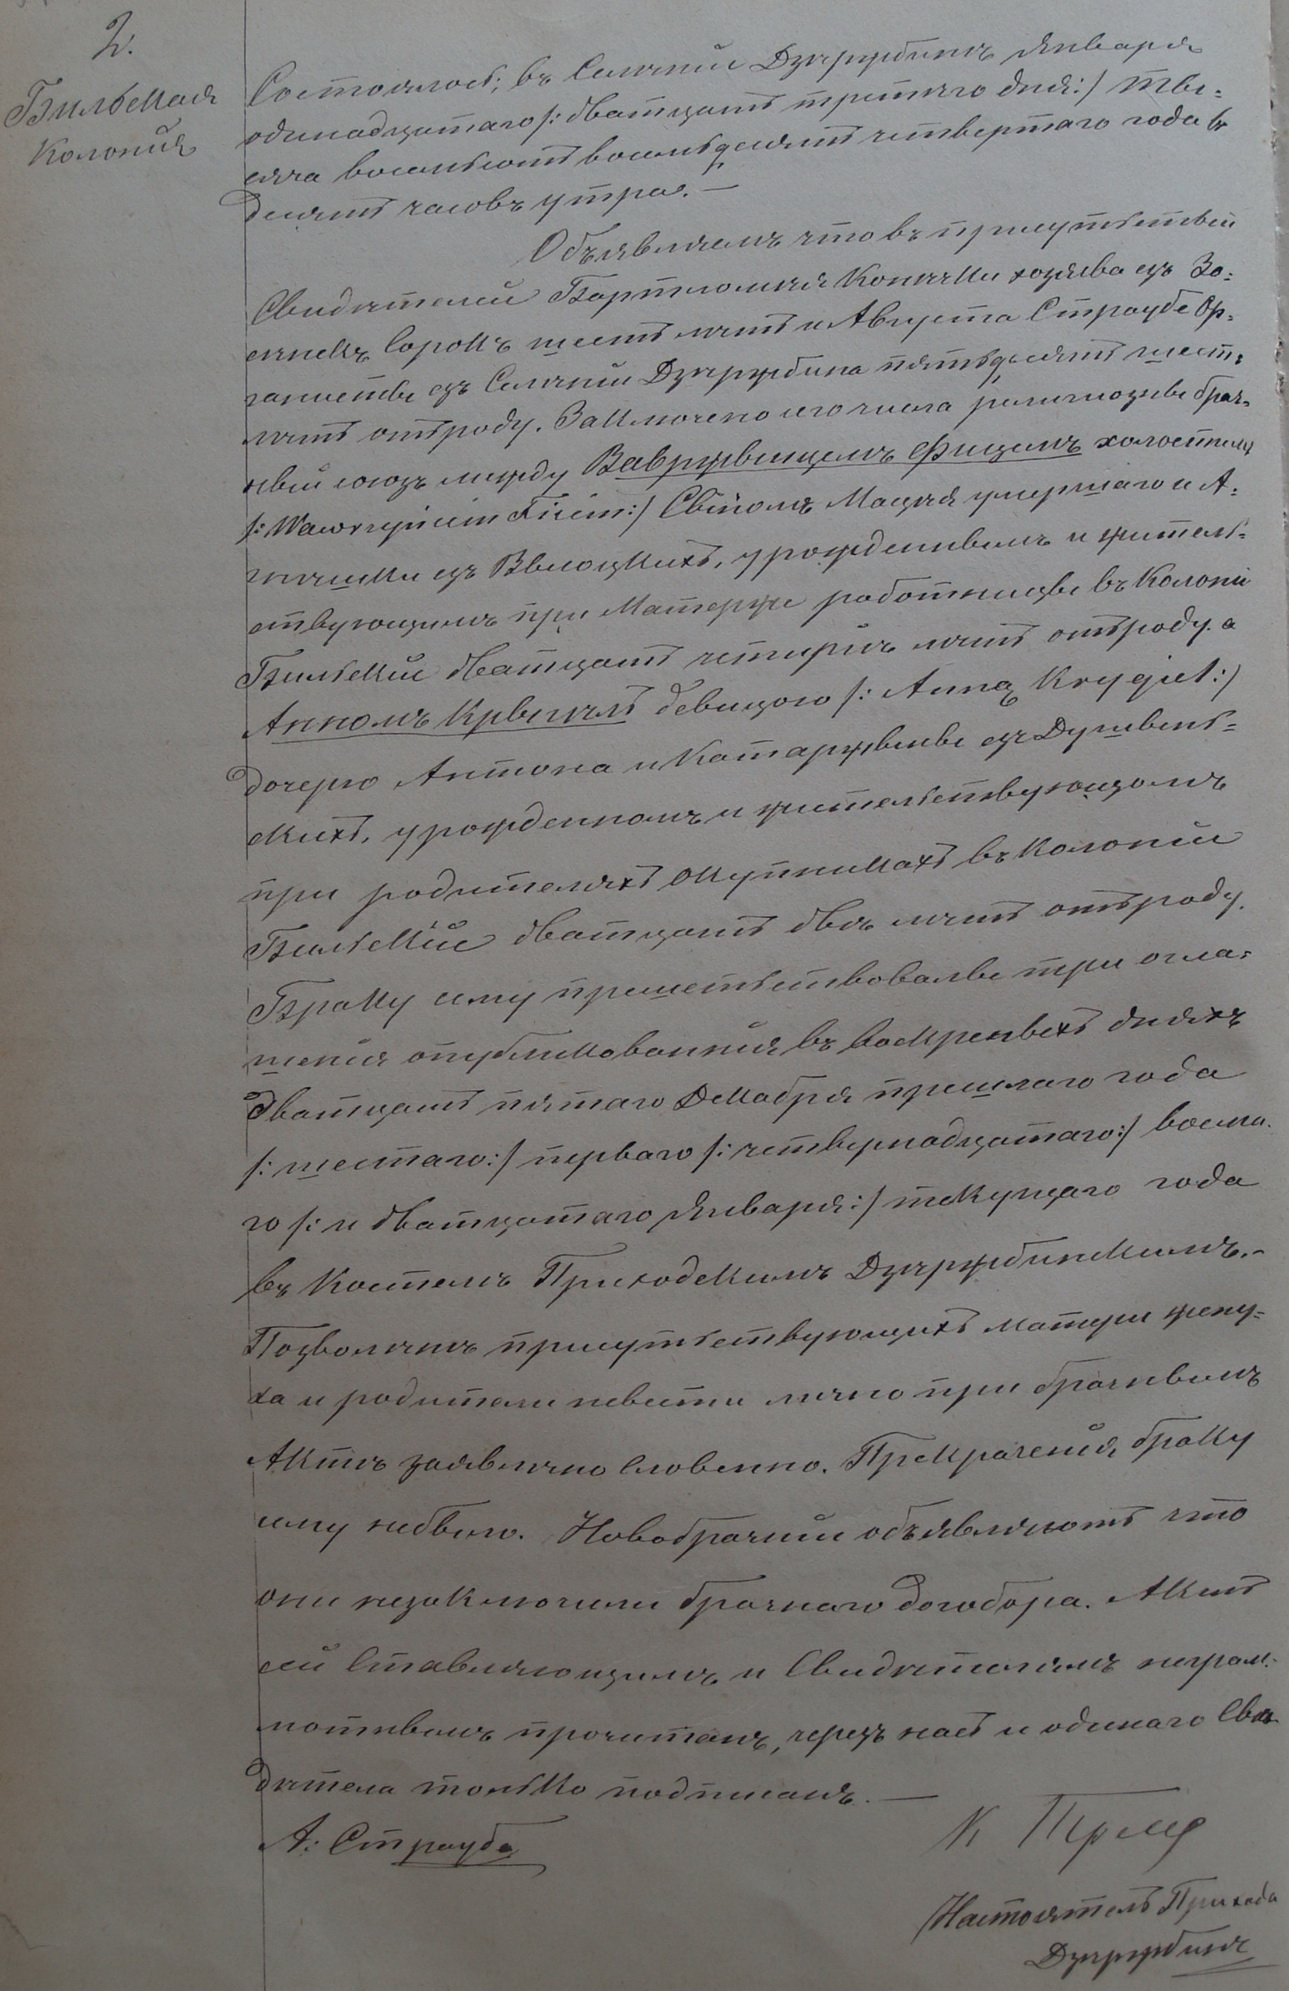 2.
Бильская
Колонія
Состоялось; въ Селеніи Дзержбинъ Января
одинадцатаго /: дватцать третяго дня:/ тыс=
яча восемьсотъ восемьдесятъ четвертаго года въ
десять часовъ утра. —
Объявляемъ что въ присутьствіи
Свидѣтелей Бартломея хозяева изъ
сорокъ шесть лѣтъ и Августа Страубе Ор=
ганисты изъ Селеніи Дзержбина пятьдесятъ шесть
лѣтъ отъ роду. Заключено сего числа религіозны брач=
ный союзъ между Вавржынцемъ Фицемъ холостымъ
/: Wawrzyńcem Ficem:/ Сыномъ Мацея умершаго и А=
гнешки изъ урожденнымъ и жител=
ствующимъ при Матерже работницы въ Колоніи
Бильскіе дватцать четире лѣтъ отъ роду. а
Анномъ девицою /: Anną :/
дочерю Антона и Катаржыны изъ
скихъ, урожденномъ и жительствующомъ
при родителяхъ окупникахъ въ Колоніи
Бильскіе дватцать двѣ лѣтъ отъ роду.
Браку сему прешетьствовалы три огла=
шенія опубликованнія въ воскресныхъ дняхъ
дватцать пятаго Декабря прешлаго года
/: шестаго:/ перваго /: четвернадцатаго:/ восма
го /: и дватцатаго Января:/ текущаго года
въ Костелѣ Приходскимъ Дзержбинскимъ.-
Позволѣніе присутьствующихъ матери жени=
ха и родители невести лично при брачнымъ
Актѣ заявлѣно словенно. Прекраченія браку
сему небыло. Новобрачніи объявляютъ что
они незаключили брачнаго договора. Актъ
сей Ставляющимъ и Свидѣтелямъ неграм=
мотнымъ прочитанъ, черезъ насъ и одинаго Сви
дѣтеля только подписанъ. —
А: Страубе
К
Настоятель Прихода
Дзержбинъ